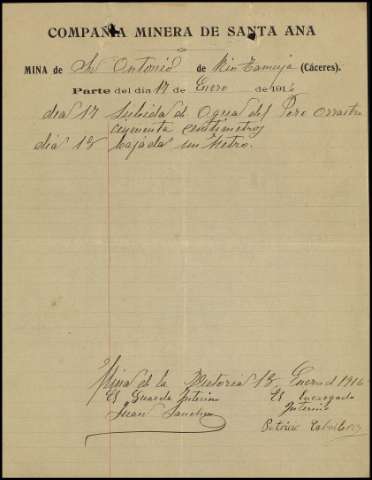 COMPAÑIA MINERA DE SANTA ANA
MINA de Sn Antonio de Rio Tamuja (Cáceres).
Parte del día 17 de Enero de 1916
dia 17 Subida de Agua del Pozo
cincuenta centimetros
dia 18 bajada un Metro.
Mina de la Victoria 18 Enero de 1916
El Guarda Interino El Encargado
Juan Sanchez Interino
Patricio Caballero